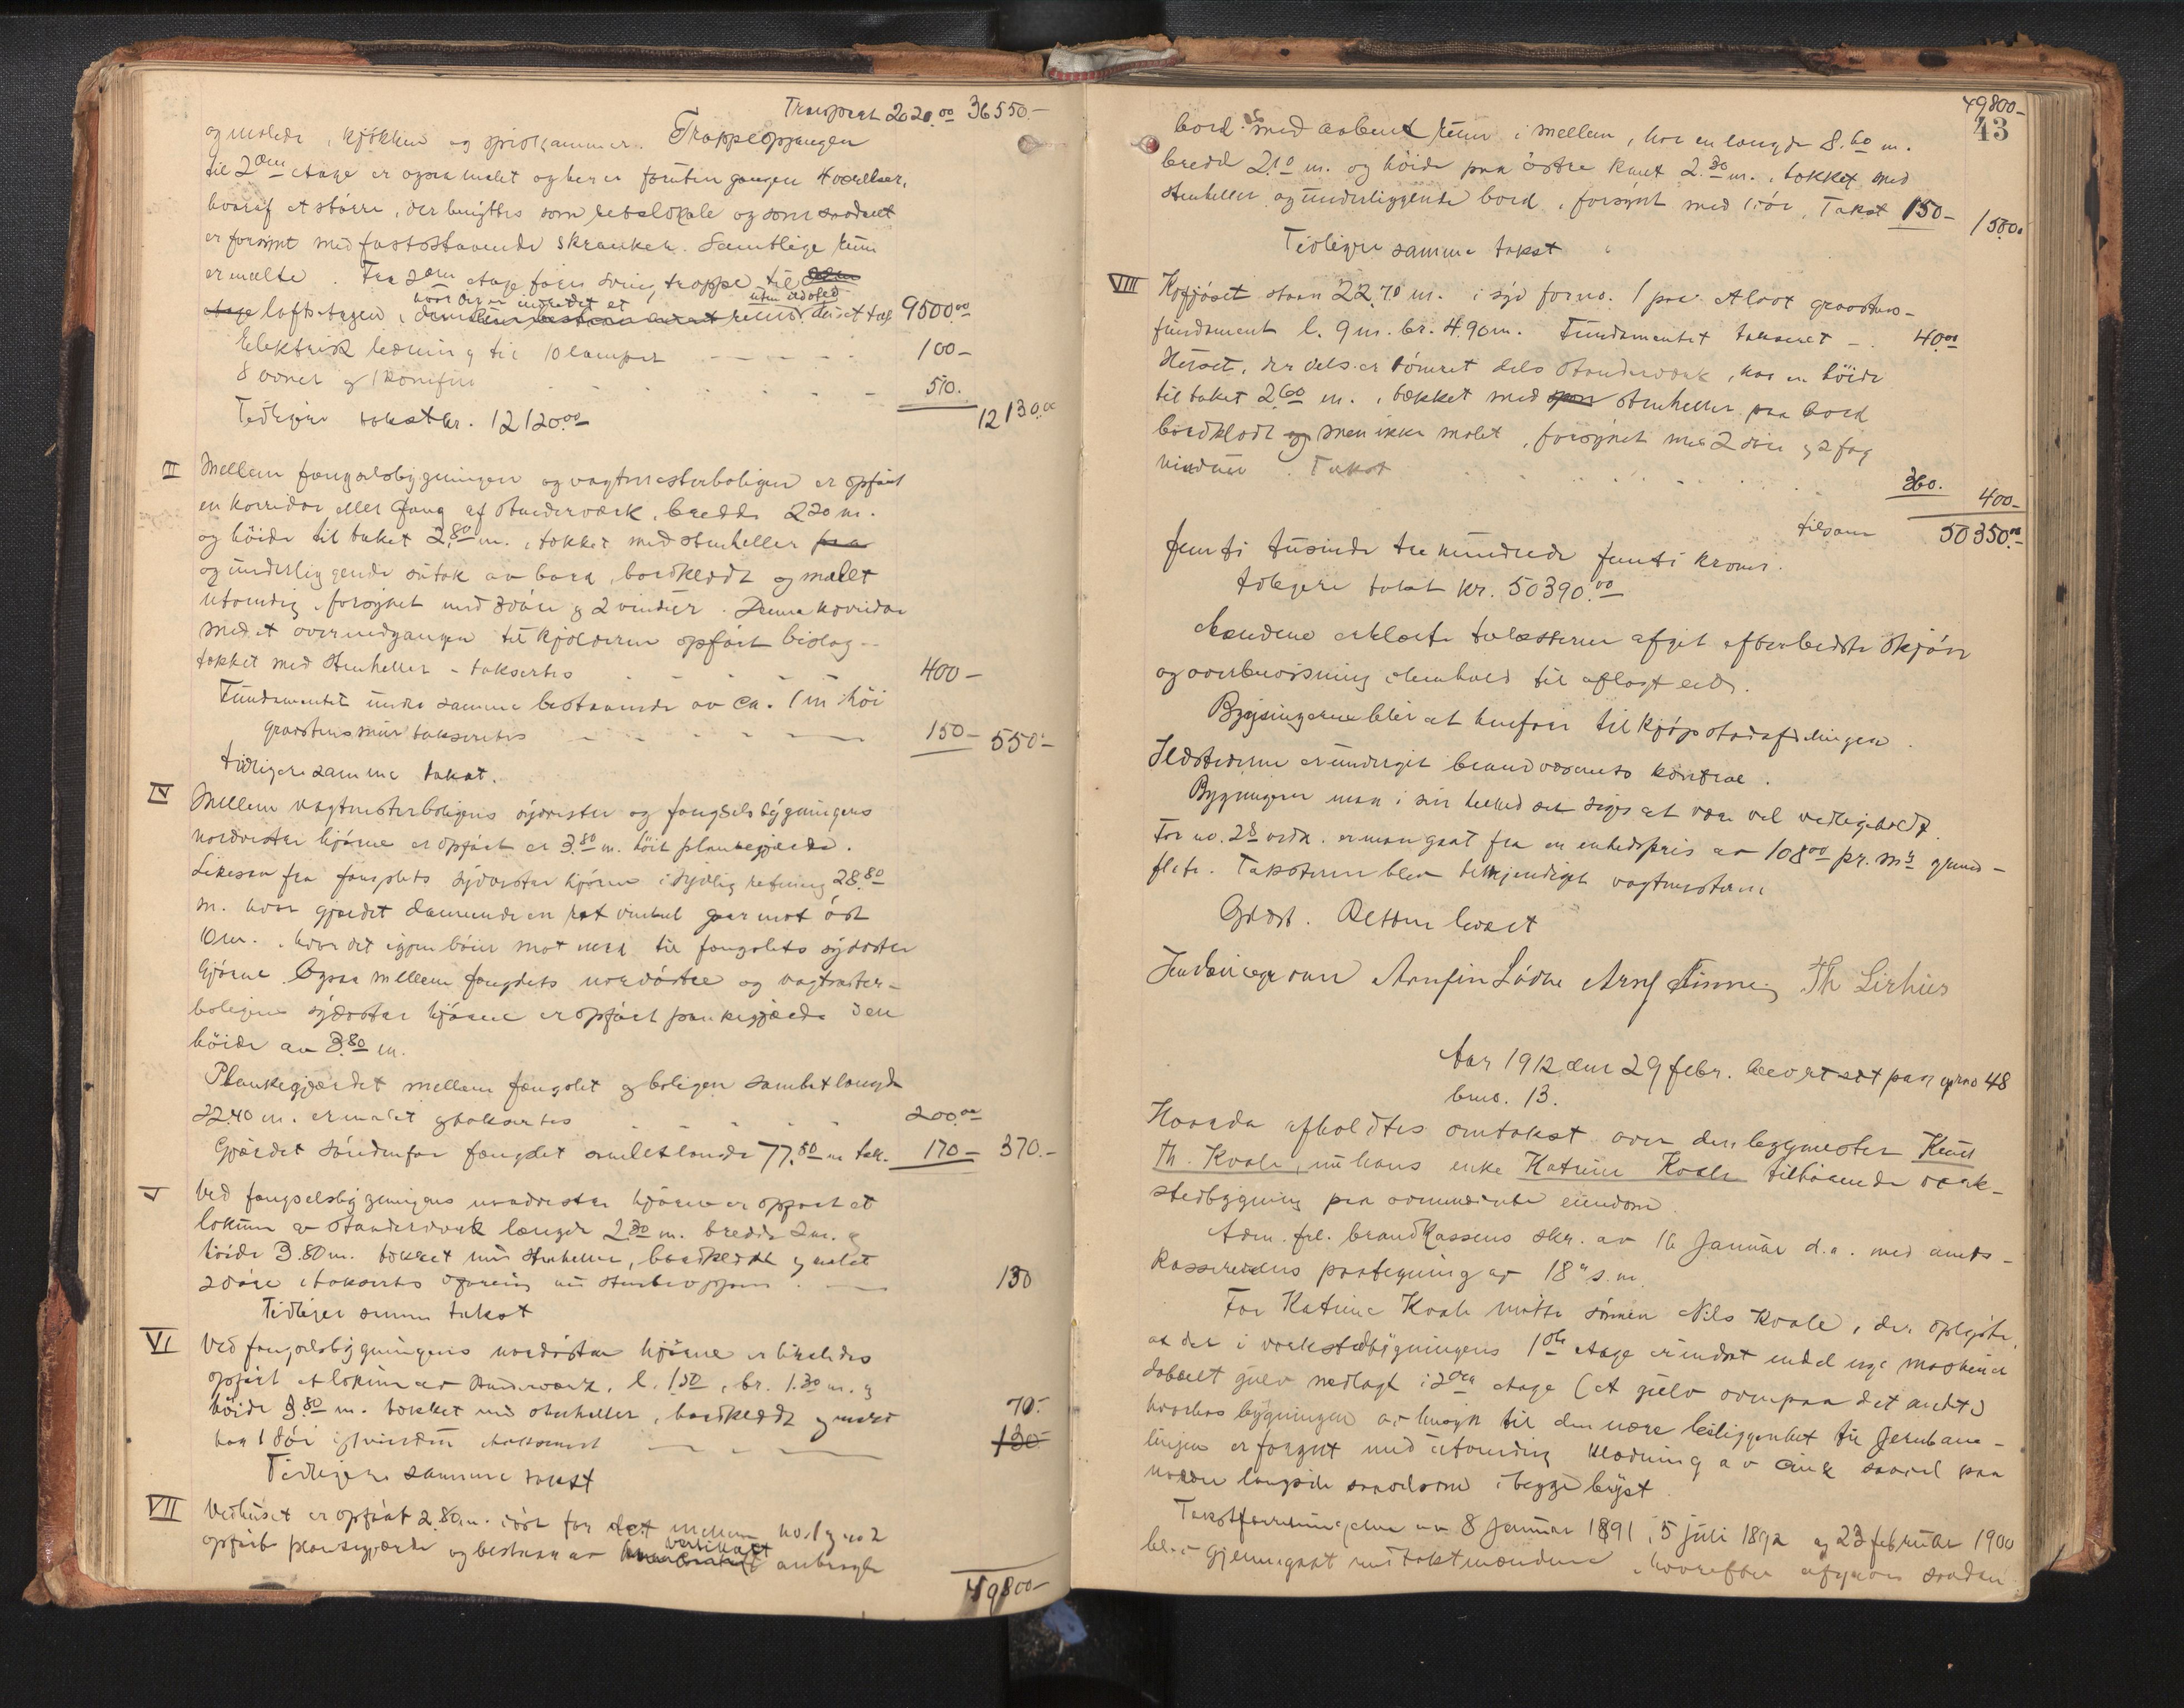 Transport 2020.00 36550.-
og malede, kjøkken og spiskammer. Trappeopgangen
til 2den etage er ogsaa malet og her er foruten gangen 4 værelser,
hvoraf et större, der benyttes som retslokale og som saadant
er forsynt med fastostaaende skranker. Samtlige rum
er malte. Fra 2den etage fører sving trappe til
hvor der er indredet et uten ildsted
etage loftsetagen, rum 9500.00
Elektrisk ledning til 10 lamper 100-
8 ovner og 1 komfur 510.
Tidligere takst kr. 12120.00 12130.00
II Mellem fængselsbygningen og vagtmesterboligen er opført
en korridor eller gang af standerværk, bredde 2 20 m.
og höide til taket 2.80 m., tækket med stenheller paa
og underliggende sutak av bord, bordklædt og malet
utvendig, forsynet med 3 döre og 2 vinduer. Denne korridor
med et over nedgangen til kjælderen opført bislag -
tækket med stenheller - taksertes 400 -
Fundamentet under samme bestaaende av ca. 1 m höi
graastensmur taksertes 150 - 550.-
tidligere samme takst.
IV Mellem vagtmesterboligens sydvestre og fængselsbygningens
nordvestre hjörne er opført et 3.80 m. höit plankegjærde.
Likesaa fra fængslets sydvestre hjörne i sydlig retning 28.80
m. hvor gjærdet dannende en ret vinkel gaar mot öst
10 m., hvor det igjen böier mot nord til fængslets sydöstre
hjörne. Ogsaa mellem fængslets nordöstre og vagtmester-
boligens sydöstre hjörne er opført plankegjærde i en
höide av 3.80 m.
Plankegjærdet mellem fængslet og boligen samlet længde
22.40 m. er malet og taksertes 200.00
Gjærdet søndenfor fængslet samlet længde 77.80 m tak. 170 - 370.-
V Ved fængselsbygningens nordvestre hjörne er opført et
lokum av standerverk længde 2.30 m. bredde 2 m. og
höide 3.80 m. tækket med stenheller, bordklædt og malet
2 döre, taksertes 130
Tidligere samme takst
VI Ved fængselsbygningens nordöstre hjörne er likeledes
opført et lokum av standerværk, l. 1.50, br. 1.30 m. og
höide 3.80 m. tækket med stenheller, bordklædt og malet 70.-
har 1 dör og 1 vindu, taksert 130-
Tidligere samme takst
VII Vedhuset er opført 2.80 m. öst for det mellem no. 1 og no 2
opførte plankegjærde og bestaar av vertikalt anbragte
49800-
49800-
43
bord med aabent rum i mellem, har en længde 8.60 m.
bredde 2.10 m. og höide paa östre kant 2.30 m., tækket med
stenheller og underliggende bord, forsynt med 1 dör. Takst 150- 150.
Tidligere samme takst
VIII Kofjöset staar 22.70 m. i syd for no. 1 paa et lavt graastens-
fundament l. 9 m. br. 4.90 m. Fundamentet takseret - 40.00
Huset, der dels er tömret dels standerværk, har en höide
til taket 2.60 m., tækket med spon stenheller paa bord
bordklædt og men ikke malet, forsynet med 2 döre og 2 fag
vinduer. Takst 360. 400-
tilsam 50350.00-
femti tusinde tre hundrede femti kroner.
tidligere takst kr. 50390.00
Mændene erklærte taksterne afgit efter bedste skjön
og overbevisning i henhold til aflagt ed.
Bygningerne blir at henføre til kjöpstadsafdelingen.
Ildstederne er undergit brandvæsenets kontrol.
Bygningerne maa i sin helhed siges at være vel vedligeholdt.
For no. 2s vedk. er man gaat fra en enhedspris av 108.00 pr. m2 grund-
flate. Taksterne blev tilkjendegit vagtmesteren
Oplæst. Retten hævet
Arnfin Arne Finne Th Lirhus
Aar 1912 den 29 febr. blev ret sat paa gno 48
bno. 13.
Hvorda afholdtes omtakst over den bygmester Knud
Th. Kvale, nu hans enke Katrine Kvale tilhörende verk-
stedbygning paa ovennævnte eiendom.
Adm. frl. brandkassens skr. av 16 Januar d.a. med amts-
kassererens paategning av 18de s.m.
For Katrine Kvale mötte sönnen Nils Kvale, der oplyste,
at der i verkstedbygningens 1ste etage er indsat endel nye maskiner
dobbelt gulv nedlagt i 2den etage (et gulv ovenpaa det andet)
hvorhos bygningen av hensyn til den nære beliggenhet til jernbane-
linjen er forsynt med utvendig klædning av zink saavel paa
nordre langside saavelsom i begge bryst.
Takstforretningerne av 8 Januar 1891, 5 juli 1892 og 23 februar 1900
blev gjennemgaat med takstmændene, hvorefter afgaves saadan